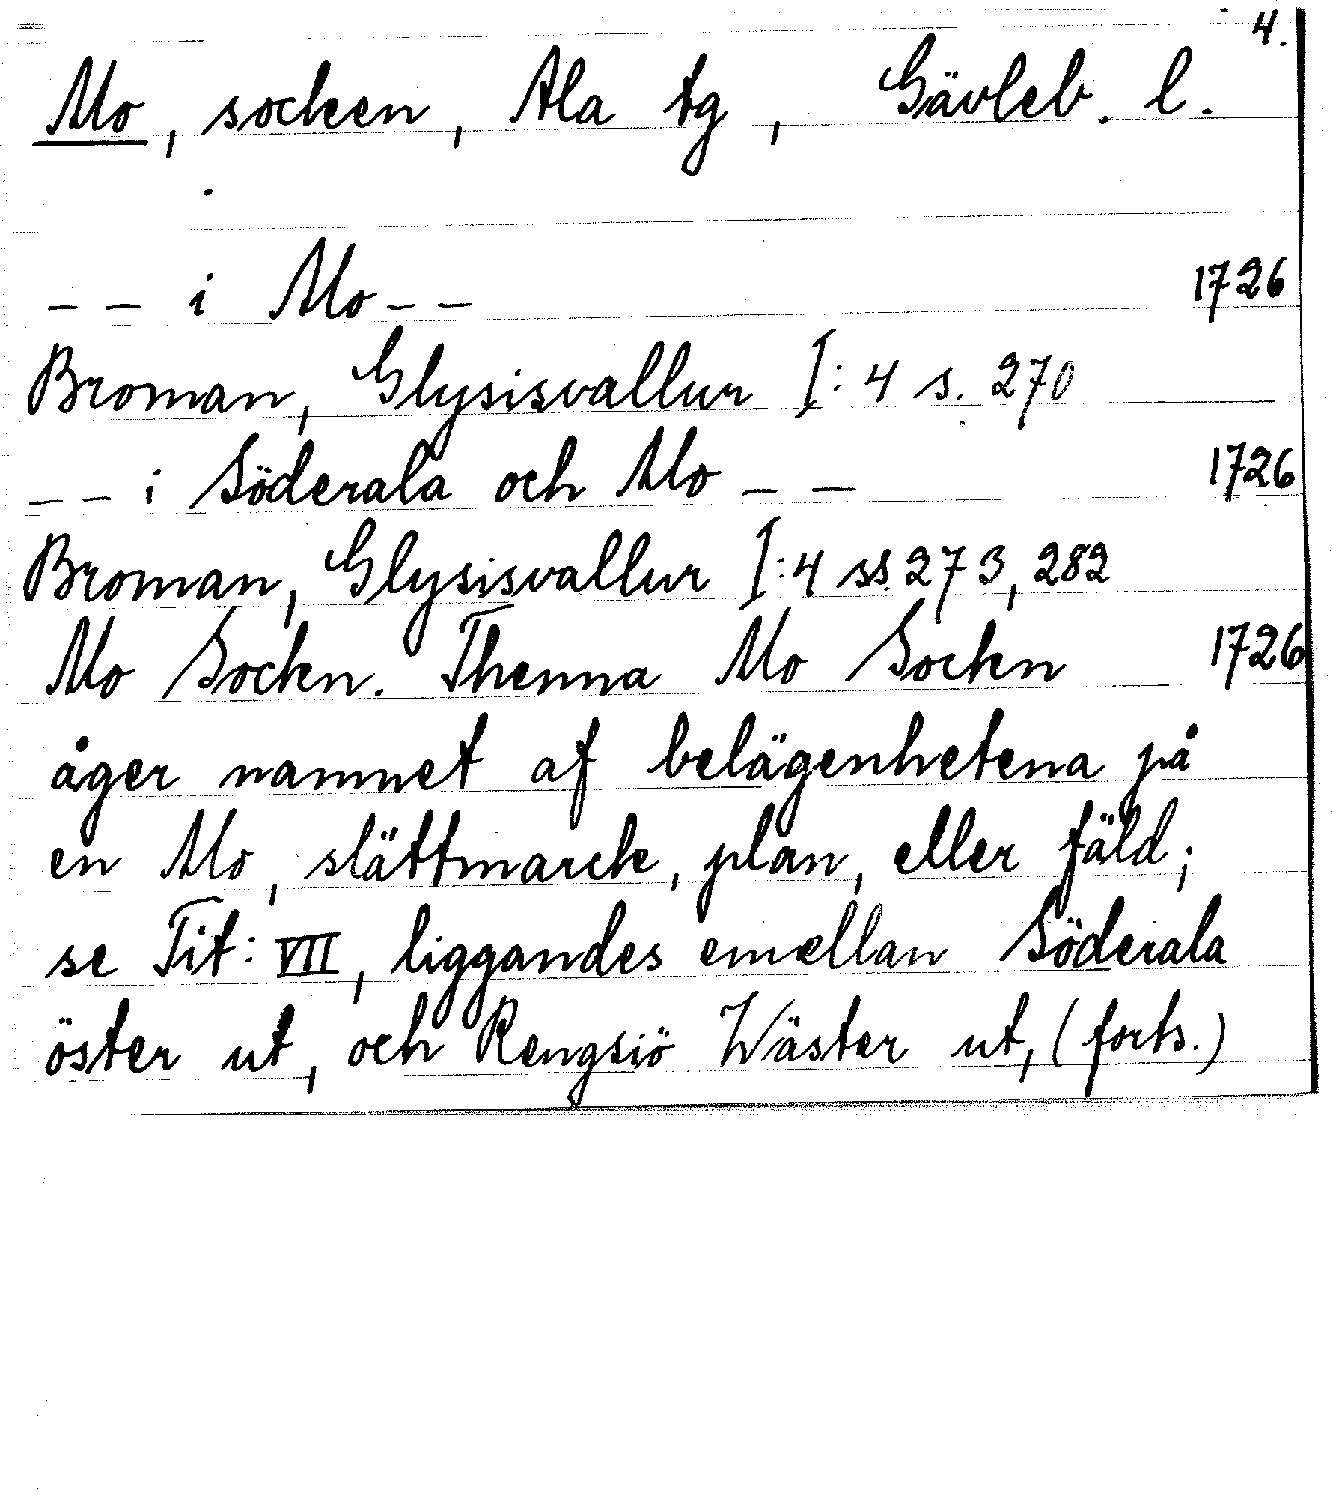 4.
Mo, socken, Ala tg, Gävleb. l.
-- i Mo -- 1726
Broman, Glysisvallur I:4 s. 270
-- i Söderala och Mo -- 1726
Broman, Glysisvallur I:4 ss. 273, 282
Mo Sockn. Thenna Mo Sockn 1726
åger namnet af belägenhetena på
en Mo, slättmarck, plan, eller fäld;
se Tit: VII, liggandes emellan Söderala
öster ut, och Rengsiö Wäster ut, (forts.)